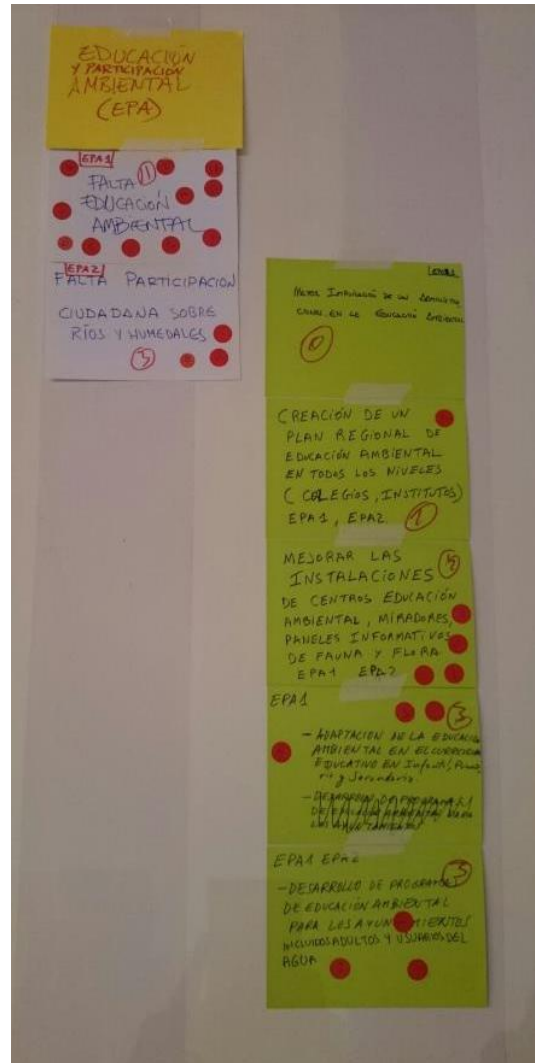 EDUCACIÓN
Y PARTICIPACIÓN
AMBIENTAL
(EPA)
EPA1
FALTA 11
EDUCACIÓN
AMBIENTAL
EPA2
FALTA PARTICIPACIÓN
CIUDADANA SOBRE
RÍOS Y HUMEDALES
3
EN LA EDUCACIÓN AMBIENTAL
0
CREACIÓN DE UN
PLAN REGIONAL DE
EDUCACIÓN AMBIENTAL
EN TODOS LOS NIVELES
(COLEGIOS, INSTITUTOS)
EPA1, EPA2. 1
MEJORAR LAS
INSTALACIONES 4
DE CENTROS EDUCACIÓN
AMBIENTAL, MIRADORES,
PANELES INFORMATIVOS
DE FAUNA Y FLORA
EPA1 EPA2
EPA1 3
- ADAPTACIÓN DE LA EDUCACIÓN
AMBIENTAL EN EL CURRICULUM
EDUCATIVO EN Infantil, Prima
ria y Secundaria.
- DESARROLLO DE PROGRAMAS
DE EDUCACIÓN AMBIENTAL PARA
LOS AYUNTAMIENTOS
EPA1 EPA2 3
- DESARROLLO DE PROGRAMAS
DE EDUCACIÓN AMBIENTAL
PARA LOS AYUNTAMIENTOS
INCLUIDOS ADULTOS Y USUARIOS DEL
AGUA